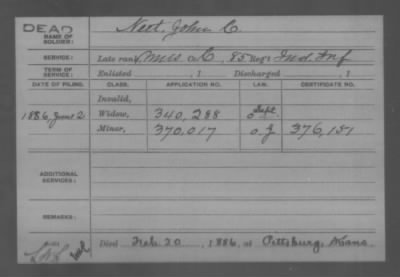 DEAD
NAME OF SOLDIER: Nett, John C.
SERVICE: Late rank, Mus Co C, 85 Reg't Ind Inf
TERM OF SERVICE: Enlisted , 1 Discharged , 1
DATE OF FILING. CLASS. APPLICATION NO. LAW. CERTIFICATE NO.
Invalid,
1886 June 2 Widow, 340,288
Minor, 370,017 376,151
ADDITIONAL SERVICES:
REMARKS:
Died Feb. 20, 1886, at Pittsburg, Kans